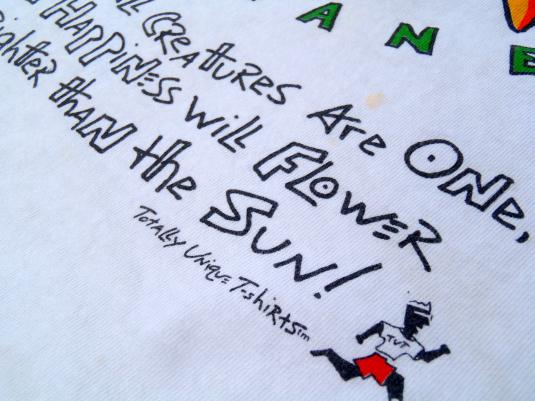 ANE
ALL CREATURES ARE ONE,
HAPPINESS will FLOWER
righter thAN the SUN!
TotALLY UNiQUE T-shiRtS tm
TUT